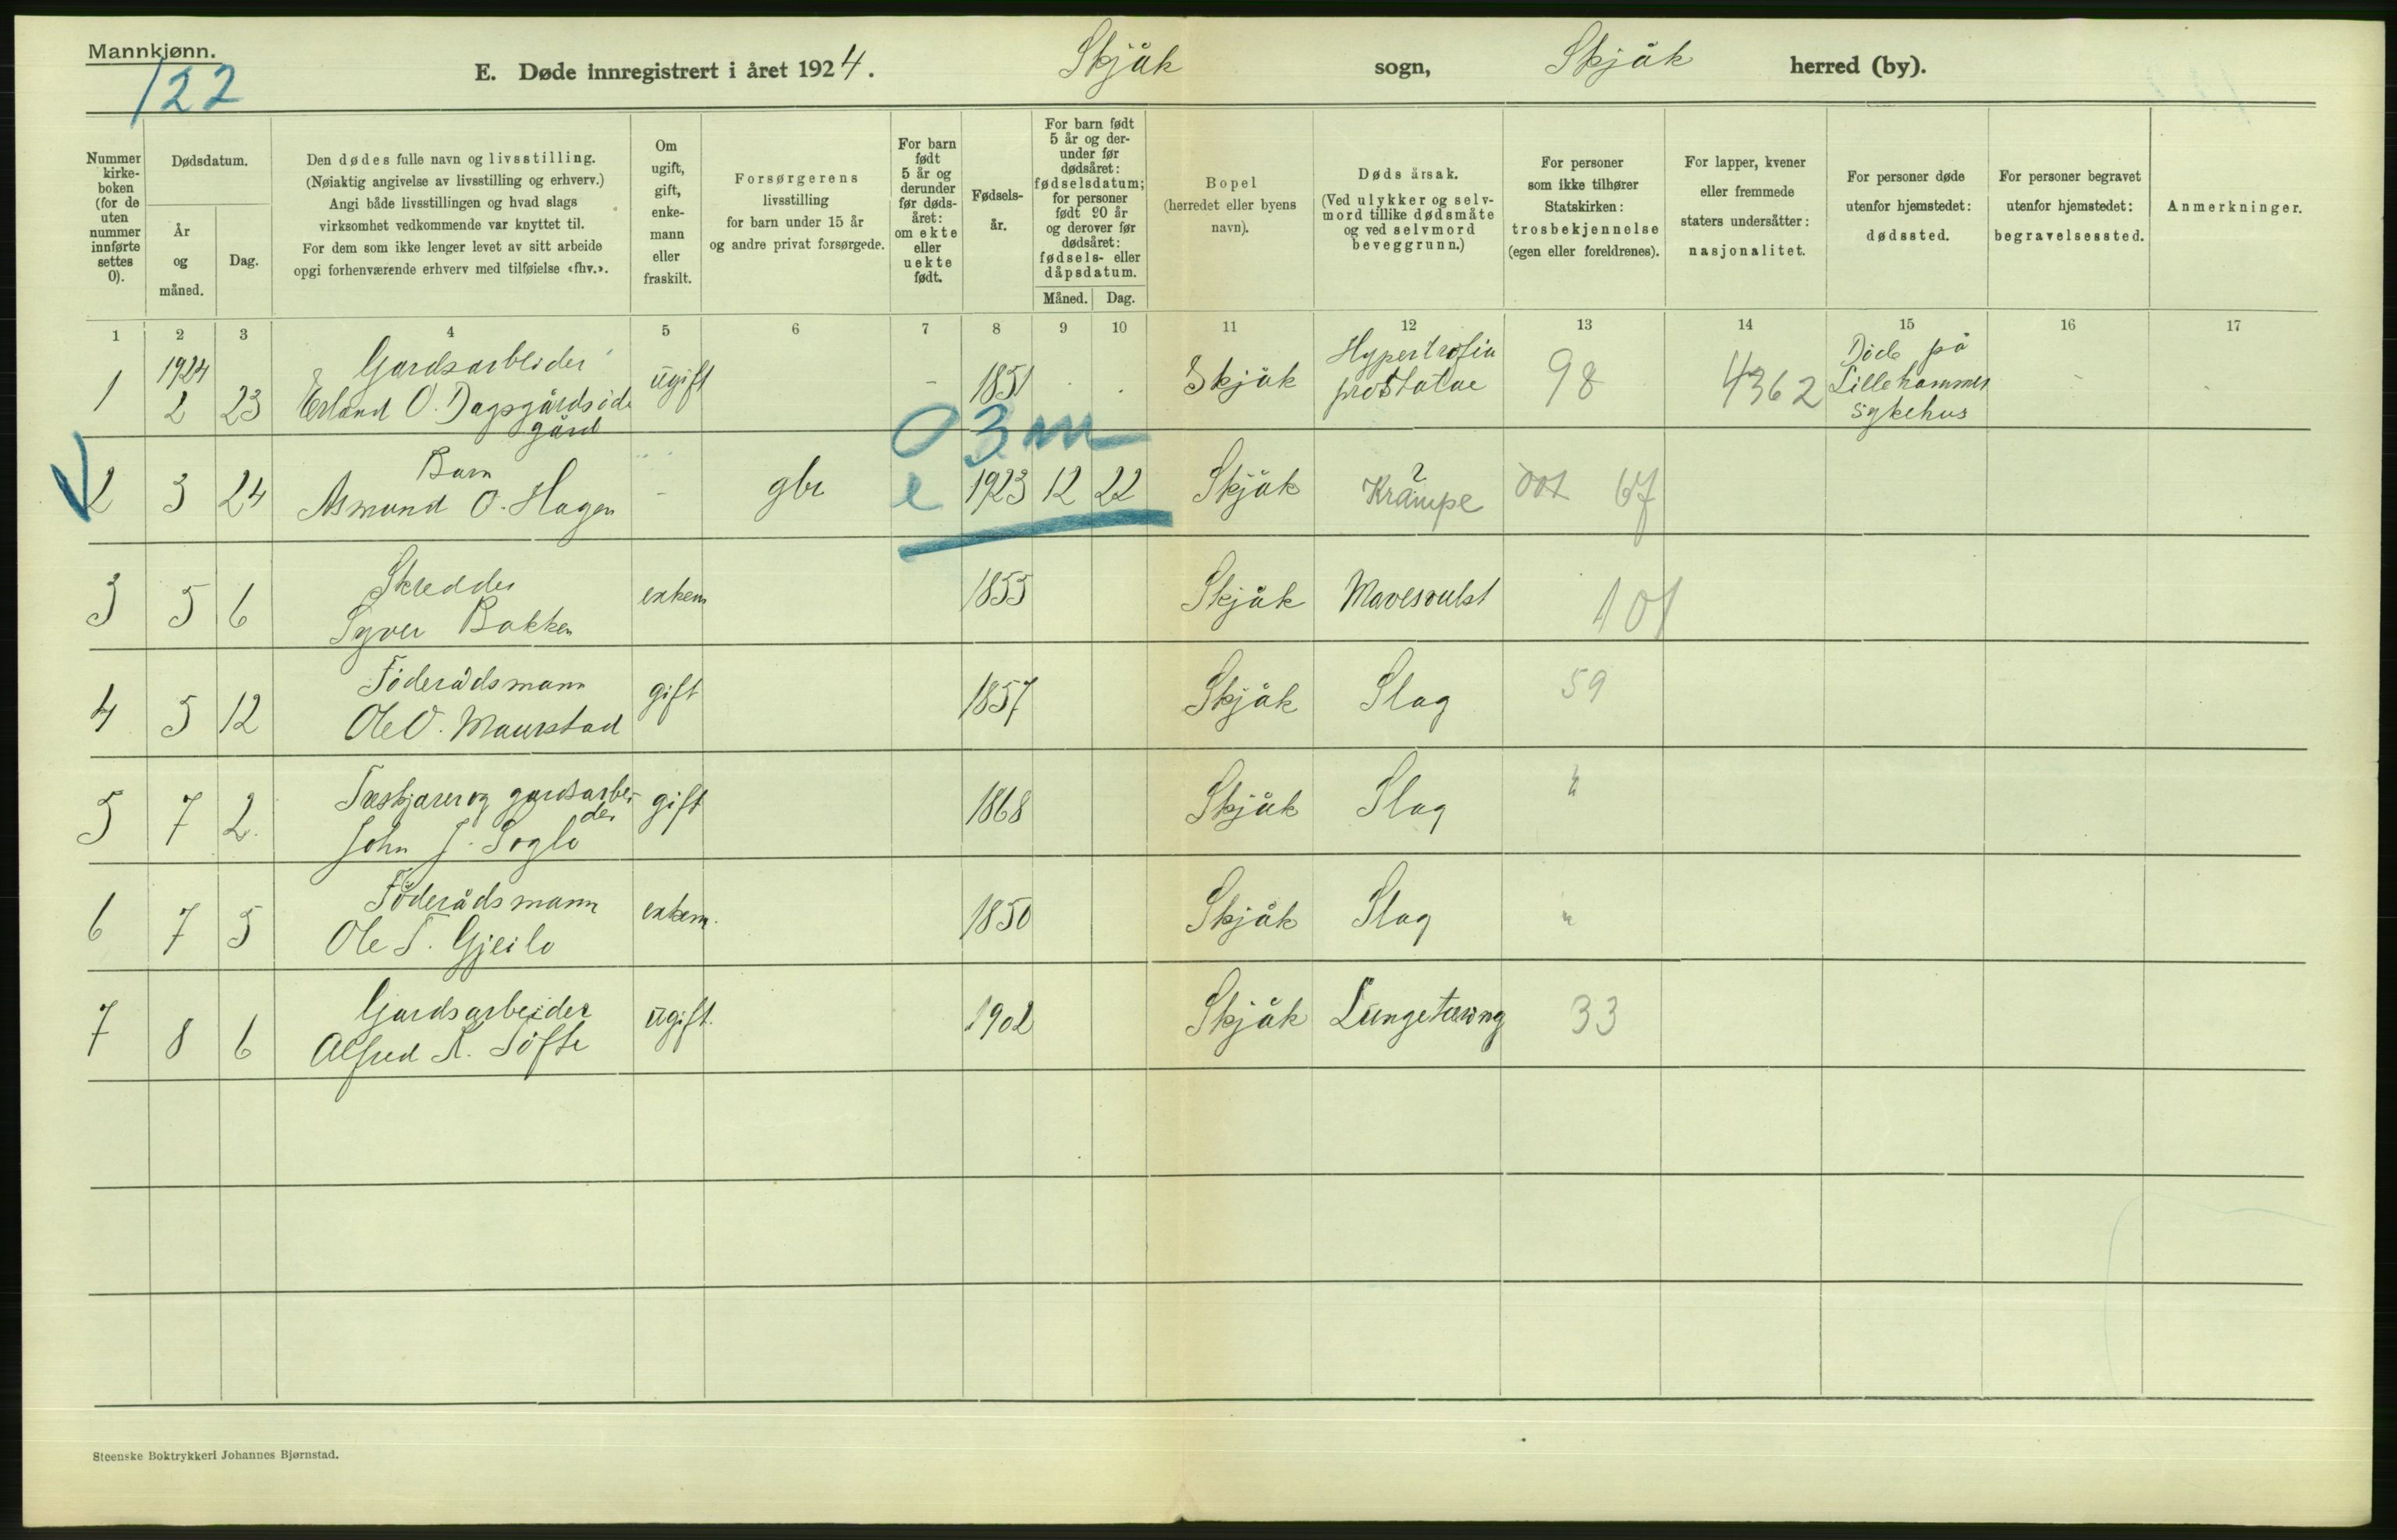 Mannkjønn.
122
E. Døde innregistrert i året 1924.
Skjåk sogn, Skjåk herred (by).
Nummer
kirke-
boken
(for de
uten
nummer
innførte
settes
0).
Dødsdatum.
År
og
måned.
Dag.
Den dødes fulle navn og livsstilling.
(Nøiaktig angivelse av livsstilling og erhverv.)
Angi både livsstillingen og hvad slags
virksomhet vedkommende var knyttet til.
For dem som ikke lenger levet av sitt arbeide
opgi forhenværende erhverv med tilføielse «fhv.».
Om
ugift,
gift,
enke-
mann
eller
fraskilt.
Forsørgerens
livsstilling
for barn under 15 år
og andre privat forsørgede.
For barn
født
5 år og
derunder
før døds-
året:
om ekte
eller
uekte
født.
Fødsels-
år.
For barn født
5 år og der-
under før
dødsåret:
fødselsdatum;
for personer
født 90 år
og derover før
dødsåret:
fødsels- eller
dåpsdatum.
Måned. Dag.
Bopel
(herredet eller byens
navn).
Dødsårsak.
(Ved ulykker og selv-
mord tillike dødsmåte
og ved selvmord
beveggrunn.)
For personer
som ikke tilhører
Statskirken:
trosbekjennelse
(egen eller foreldrenes).
For lapper, kvener
eller fremmede
staters undersåtter:
nasjonalitet.
For personer døde
utenfor hjemstedet:
dødssted.
For personer begravet
utenfor hjemstedet:
begravelsessted.
Anmerkninger.
1 2 3 4 5 6 7 8 9 10 11 12 13 14 15 16 17
1 1924 2 23 Gardsarbeider
Erland O. Dagsgårdsöde
gård
ugift - 1851 Skjåk Hypertrofia
prostatae
98 4362 Döde på
Lillehammer
Sykehus
0 3 m
2 3 24 Barn
Asmund O. Hagen
- gbr e 1923 12 22 Skjåk ?
Krampe
67
3 5 6 Skredder
Syver Bakken
enkem 1855 Skjåk Mavesvulst 101
4 5 12 Föderådsmann
Ole O. Maurstad
gift 1857 Skjåk Slag 59
5 7 2 Træskjærer og gardsarbei-
der
John J. Soglo
gift 1868 Skjåk Slag "
6 7 5 Föderådsmann
Ole T. Gjeilo
enkem. 1850 Skjåk Slag "
7 8 6 Gardsarbeider
Alfred K. Töfte
ugift. 1902 Skjåk Lungetæring 33
Steenske Boktrykkeri Johannes Bjørnstad.